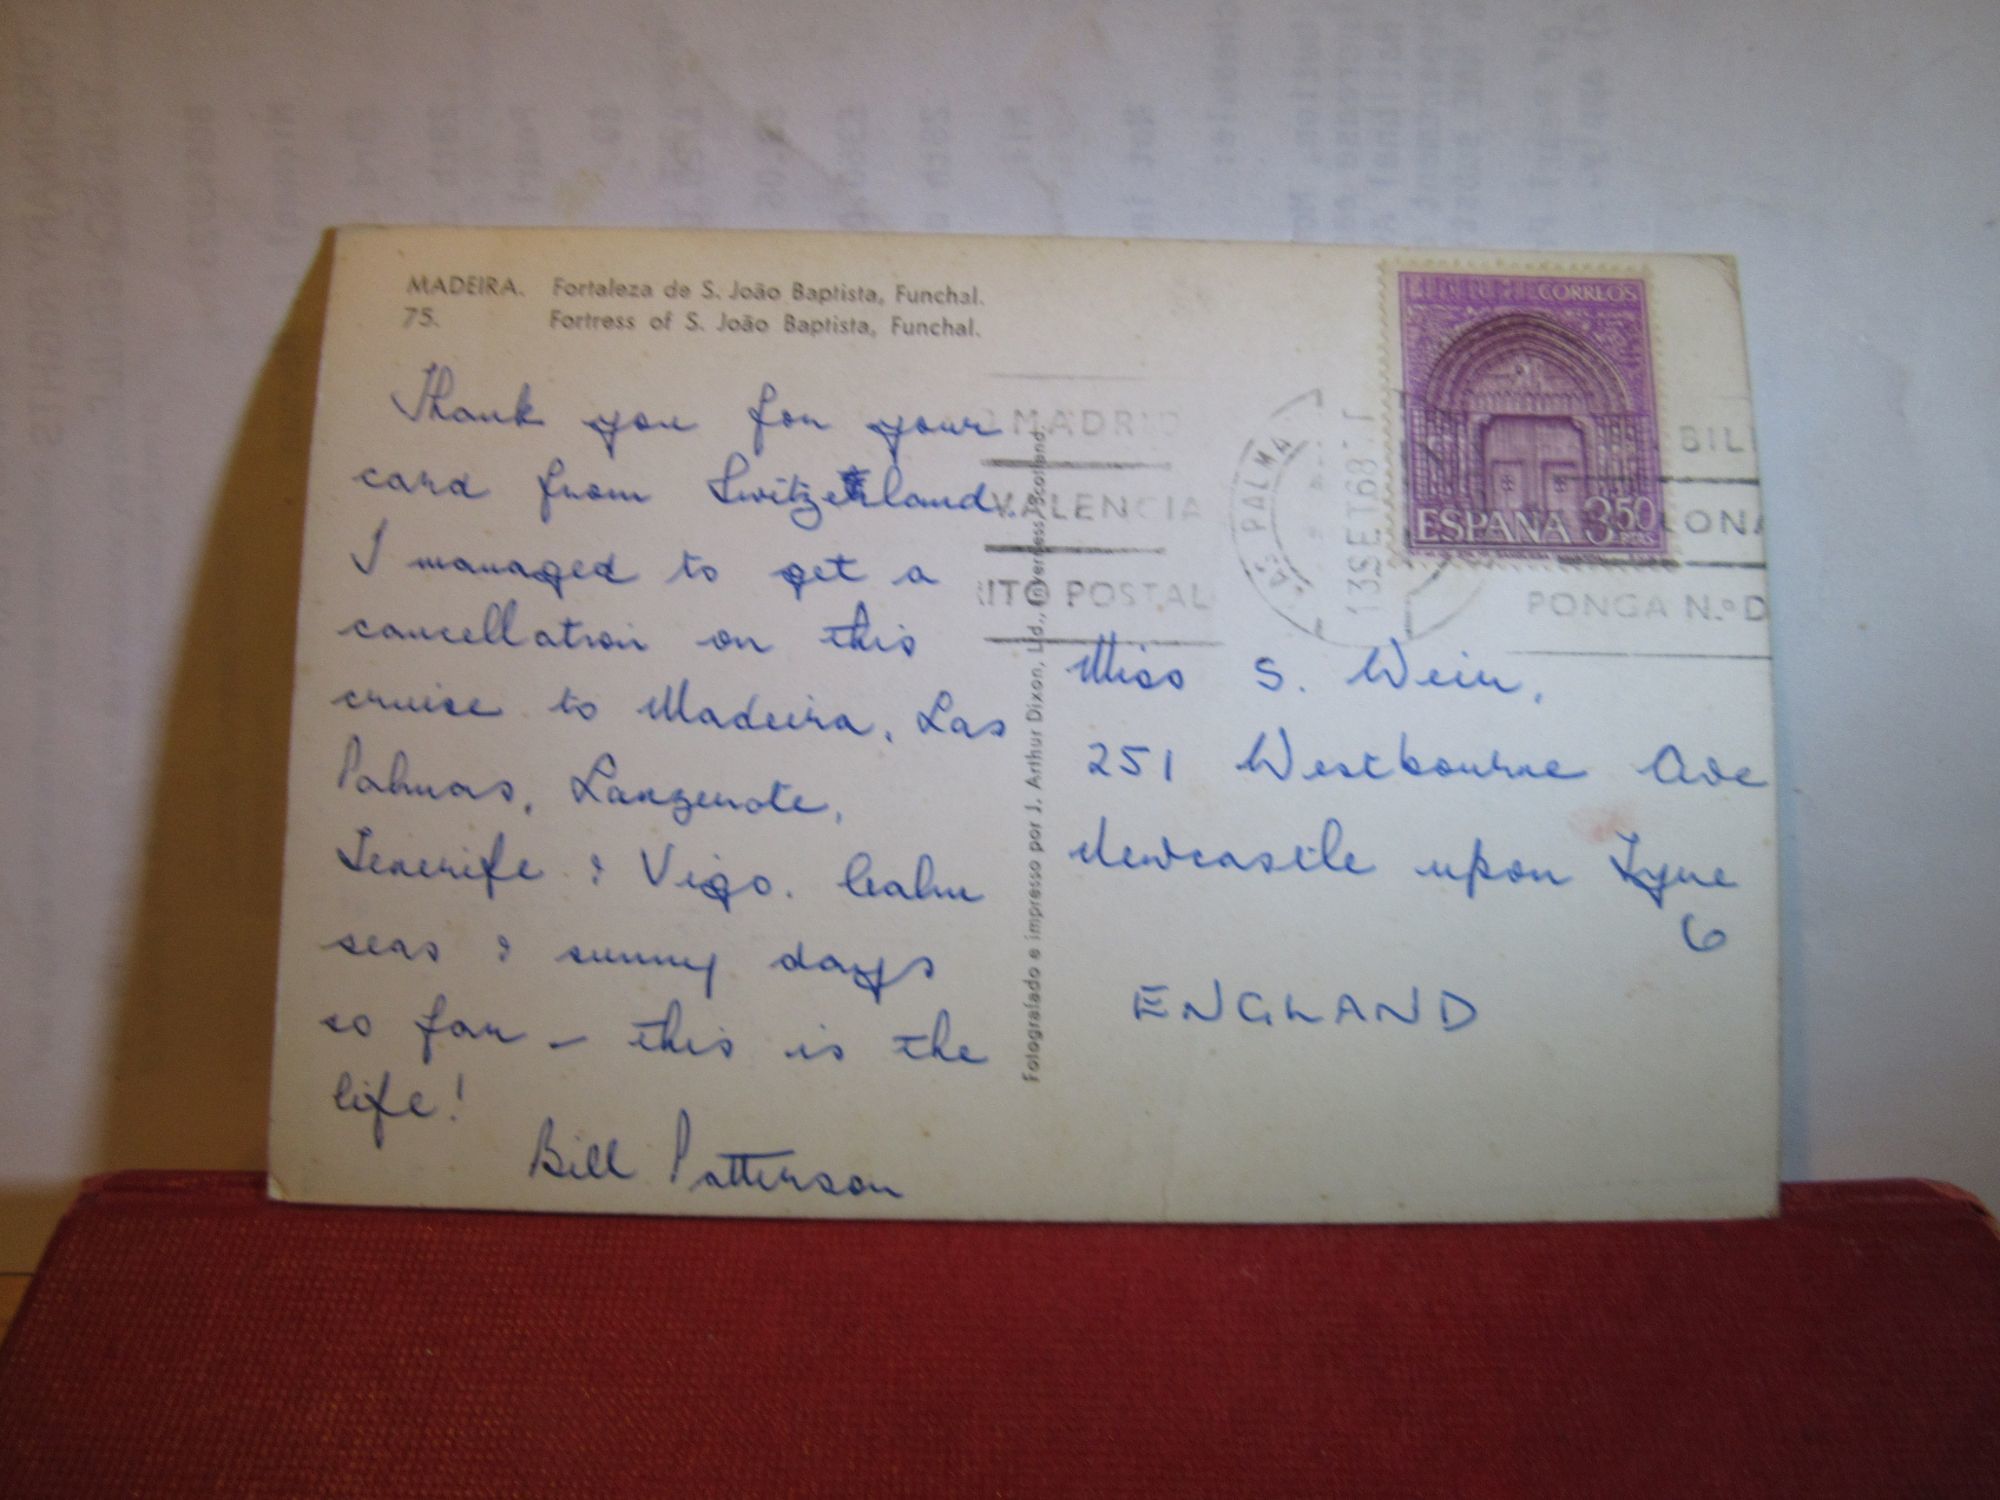 MADEIRA. Fortaleza de S. João Baptista, Funchal.
75. Fortress of S. João Baptista, Funchal.
Thank you for your
card from Switzerland.
I managed to get a
cancellation on this
cruise to Madeira, Las
Palmas, Lanzerote,
Tenerife & Vigo. Calm
seas & sunny days
so far – this is the
life!
Bill Patterson
Fotografado e impresso por J. Arthur Dixon, Ltd., Inverness, Scotland.
CORREOS
ESPAÑA 3'50
PTAS
MADRID
VALENCIA
RITO POSTAL
LAS PALMAS
13 SET 68
BIL
LONA
PONGA N.º D
Miss S. Wein,
251 Westbourne Ave
Newcastle upon Tyne
6
ENGLAND